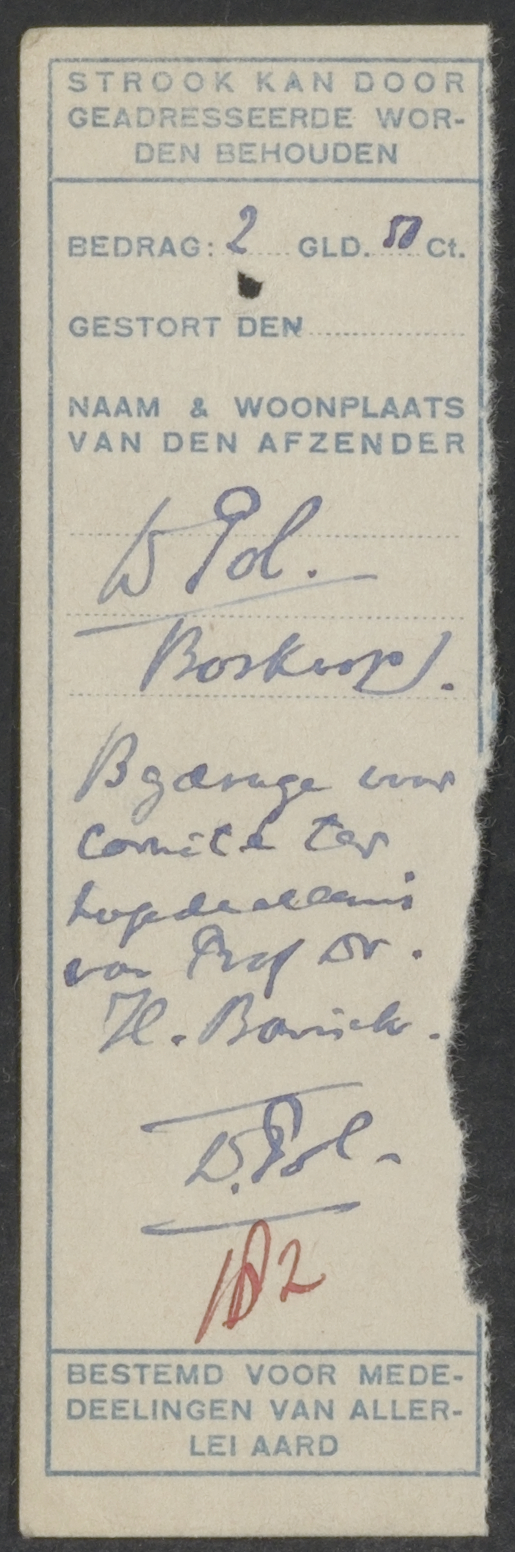 STROOK KAN DOOR
GEADRESSEERDE WOR-
DEN BEHOUDEN
BEDRAG: 2 GLD. 50 Ct.
GESTORT DEN
NAAM & WOONPLAATS
VAN DEN AFZENDER
D Pol.
Boskoop.
Bydrage voor
Comité ter
nagedachtenis
van Prof Dr.
H. Bavinck.
D. Pol.
182
BESTEMD VOOR MEDE-
DEELINGEN VAN ALLER-
LEI AARD